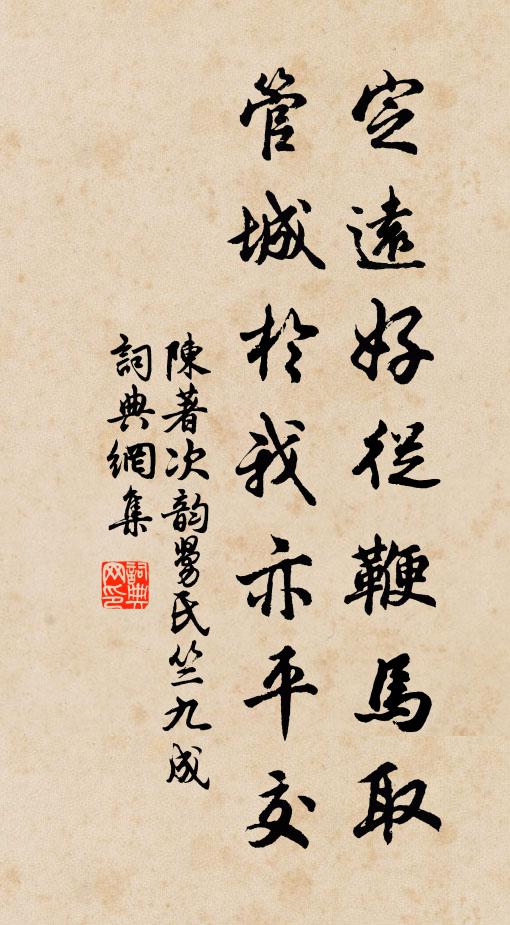 定遠好從鞭馬取
管城於我亦平交
陳著次韵勞氏竺九成
詞典網集
詞典网印